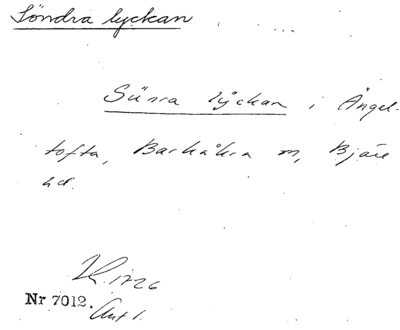 Söndra lyckan
Sünra lÿckan i Ängel-
tofta, Barkåkra sn, Bjäre
hd.
LK 1726
Nr 7012. Akt 1.